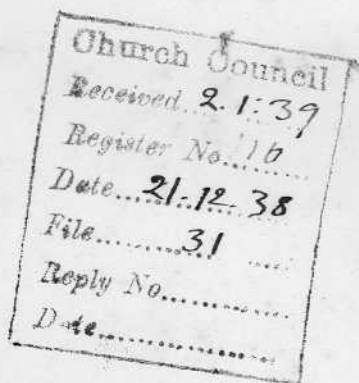 Church Council
Received 2.1.39
Register No. 16
Date 21.12.38
File 31
Reply No.
Date